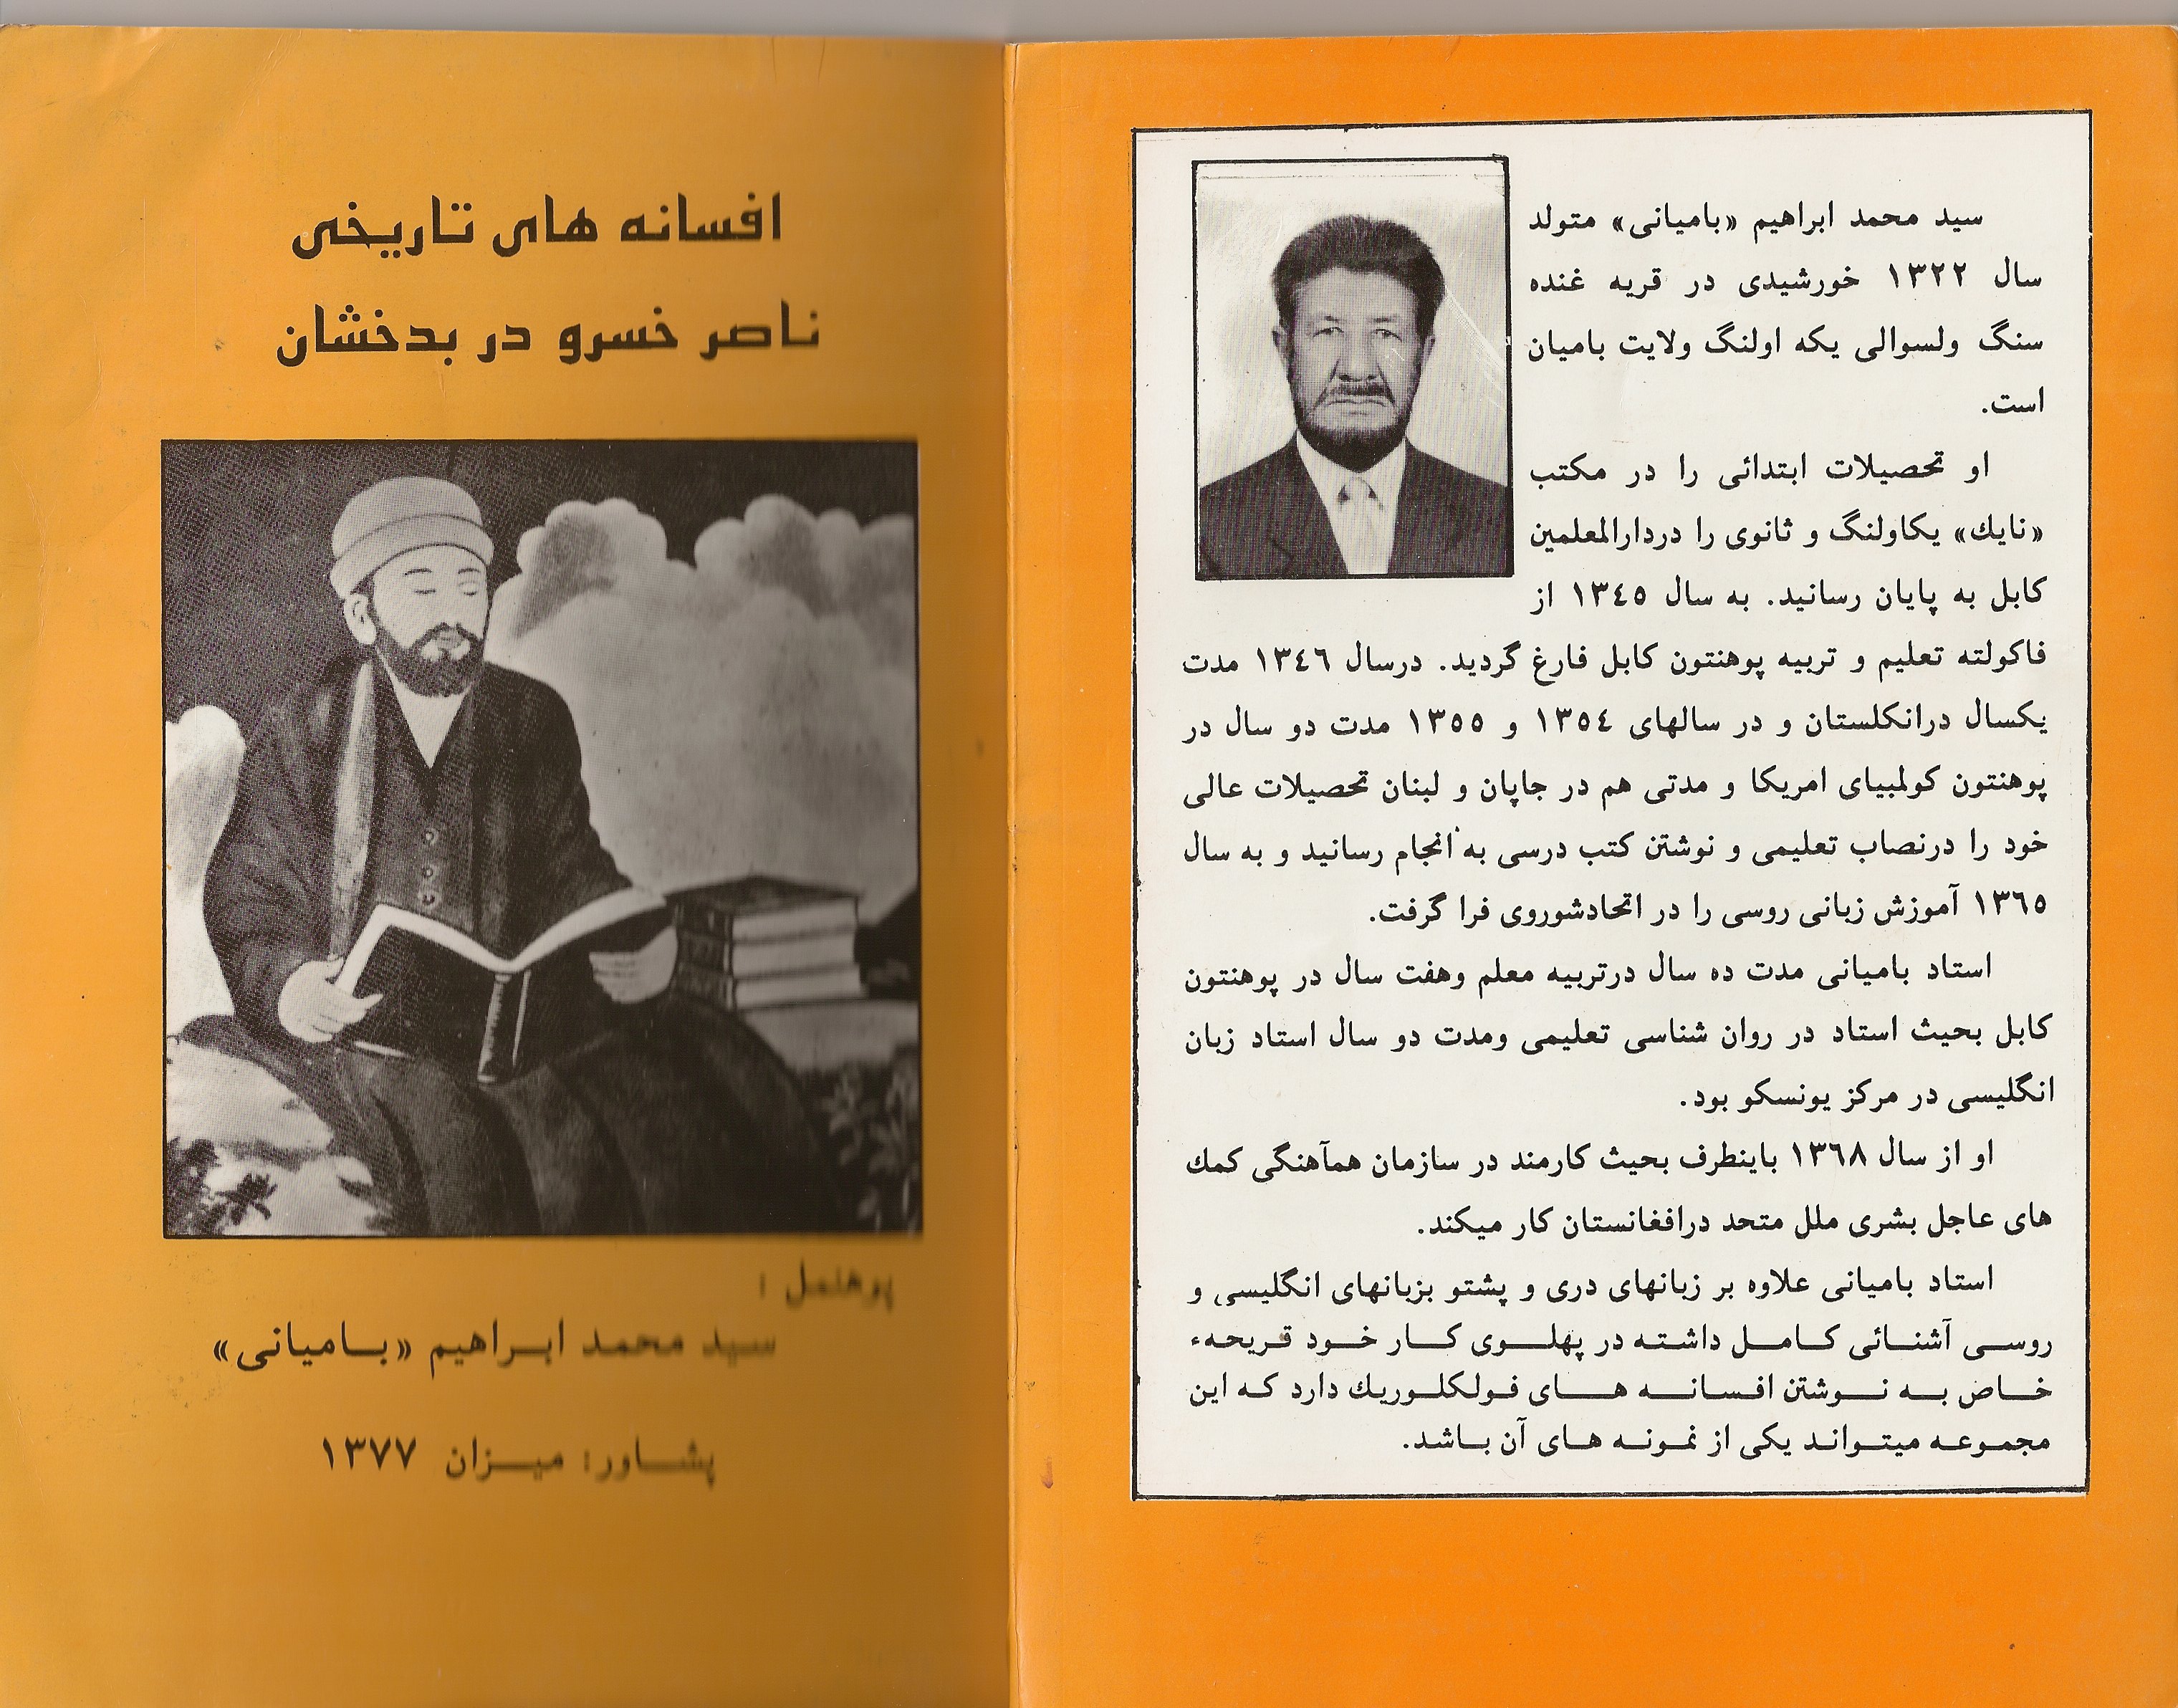 افسانه های تاریخی
ناصر خسرو در بدخشان
پوهنمل :
سید محمد ابراهیم «بامیانی»
پشاور: میزان ۱۳۷۷
سید محمد ابراهیم «بامیانی» متولد
سال ۱۳۲۲ خورشیدی در قریه غنده
سنگ ولسوالی یکه اولنگ ولایت بامیان
است.
او تحصیلات ابتدائی را در مکتب
«نایك» یکاولنگ و ثانوی را دردارالمعلمین
کابل به پایان رسانید. به سال ۱۳٤٥ از
فاکولته تعلیم و تربیه پوهنتون کابل فارغ گردید. درسال ۱۳٤٦ مدت
یکسال درانکلستان و در سالهای ۱۳٥٤ و ۱۳٥٥ مدت دو سال در
پوهنتون کولمبیای امریکا و مدتی هم در جاپان و لبنان تحصیلات عالی
خود را درنصاب تعلیمی و نوشتن کتب درسی به انجام رسانید و به سال
۱۳٦٥ آموزش زبانی روسی را در اتحادشوروی فرا گرفت.
استاد بامیانی مدت ده سال درتربیه معلم وهفت سال در پوهنتون
کابل بحیث استاد در روان شناسی تعلیمی ومدت دو سال استاد زبان
انگلیسی در مرکز یونسکو بود.
او از سال ۱۳٦۸ باینطرف بحیث کارمند در سازمان همآهنگی کمك
های عاجل بشری ملل متحد درافغانستان کار میکند.
استاد بامیانی علاوه بر زبانهای دری و پشتو بزبانهای انگلیسی و
روسی آشنائی کامل داشته در پهلوی کار خود قریحهء
خاص به نوشتن افسانه های فولکلوریك دارد که این
مجموعه میتواند یکی از نمونه های آن باشد.